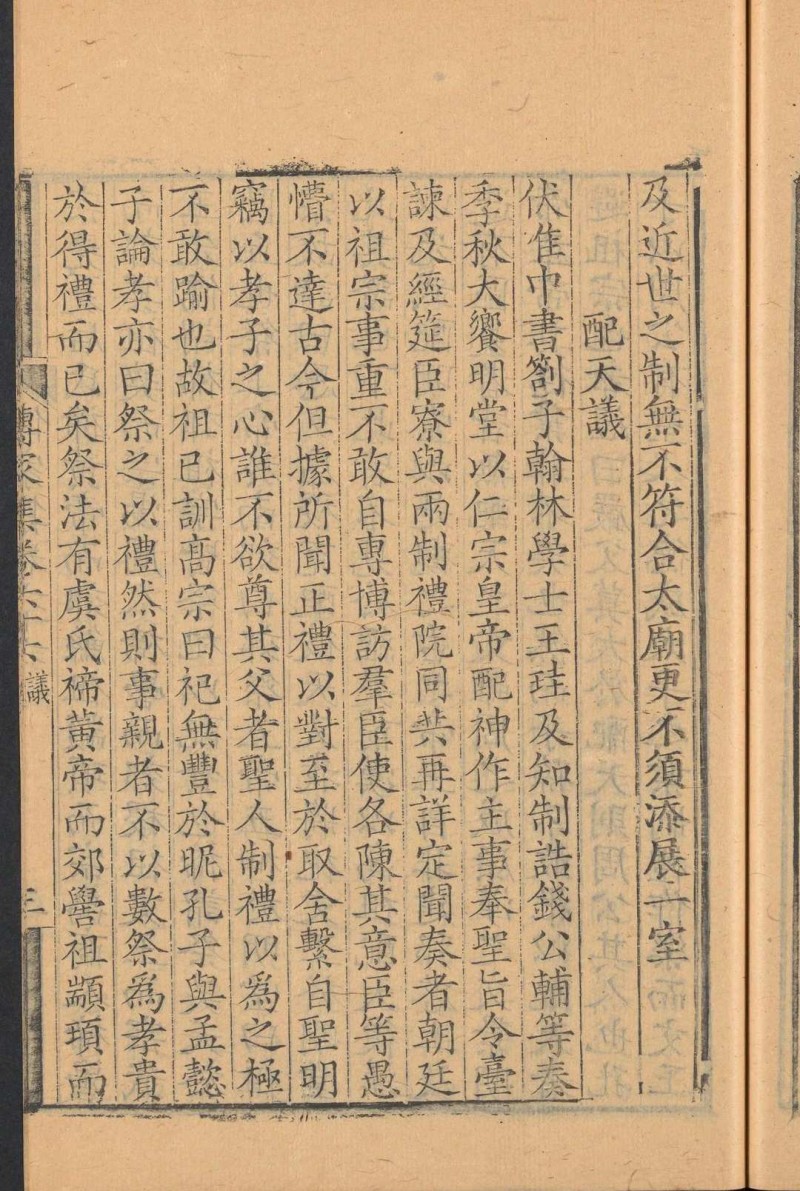 及近世之制無不符合太廟更不須添展一室
配天議
伏隹中書劄子翰林學士王珪及知制誥錢公輔等奏
季秋大饗明堂以仁宗皇帝配神作主事奉聖旨令臺
諫及經筵臣寮與兩制禮院同共再詳定聞奏者朝廷
以祖宗事重不敢自專博訪羣臣使各陳其意臣等愚
懵不達古今但據所聞正禮以對至於取舍繫自聖明
竊以孝子之心誰不欲尊其父者聖人制禮以爲之極
不敢踰也故祖已訓髙宗曰祀無豐於昵孔子與孟懿
子論孝亦曰祭之以禮然則事親者不以數祭爲孝貴
於得禮而已矣祭法有虞氏禘黄帝而郊嚳祖顓頊而
傳家集卷六十六 議 三